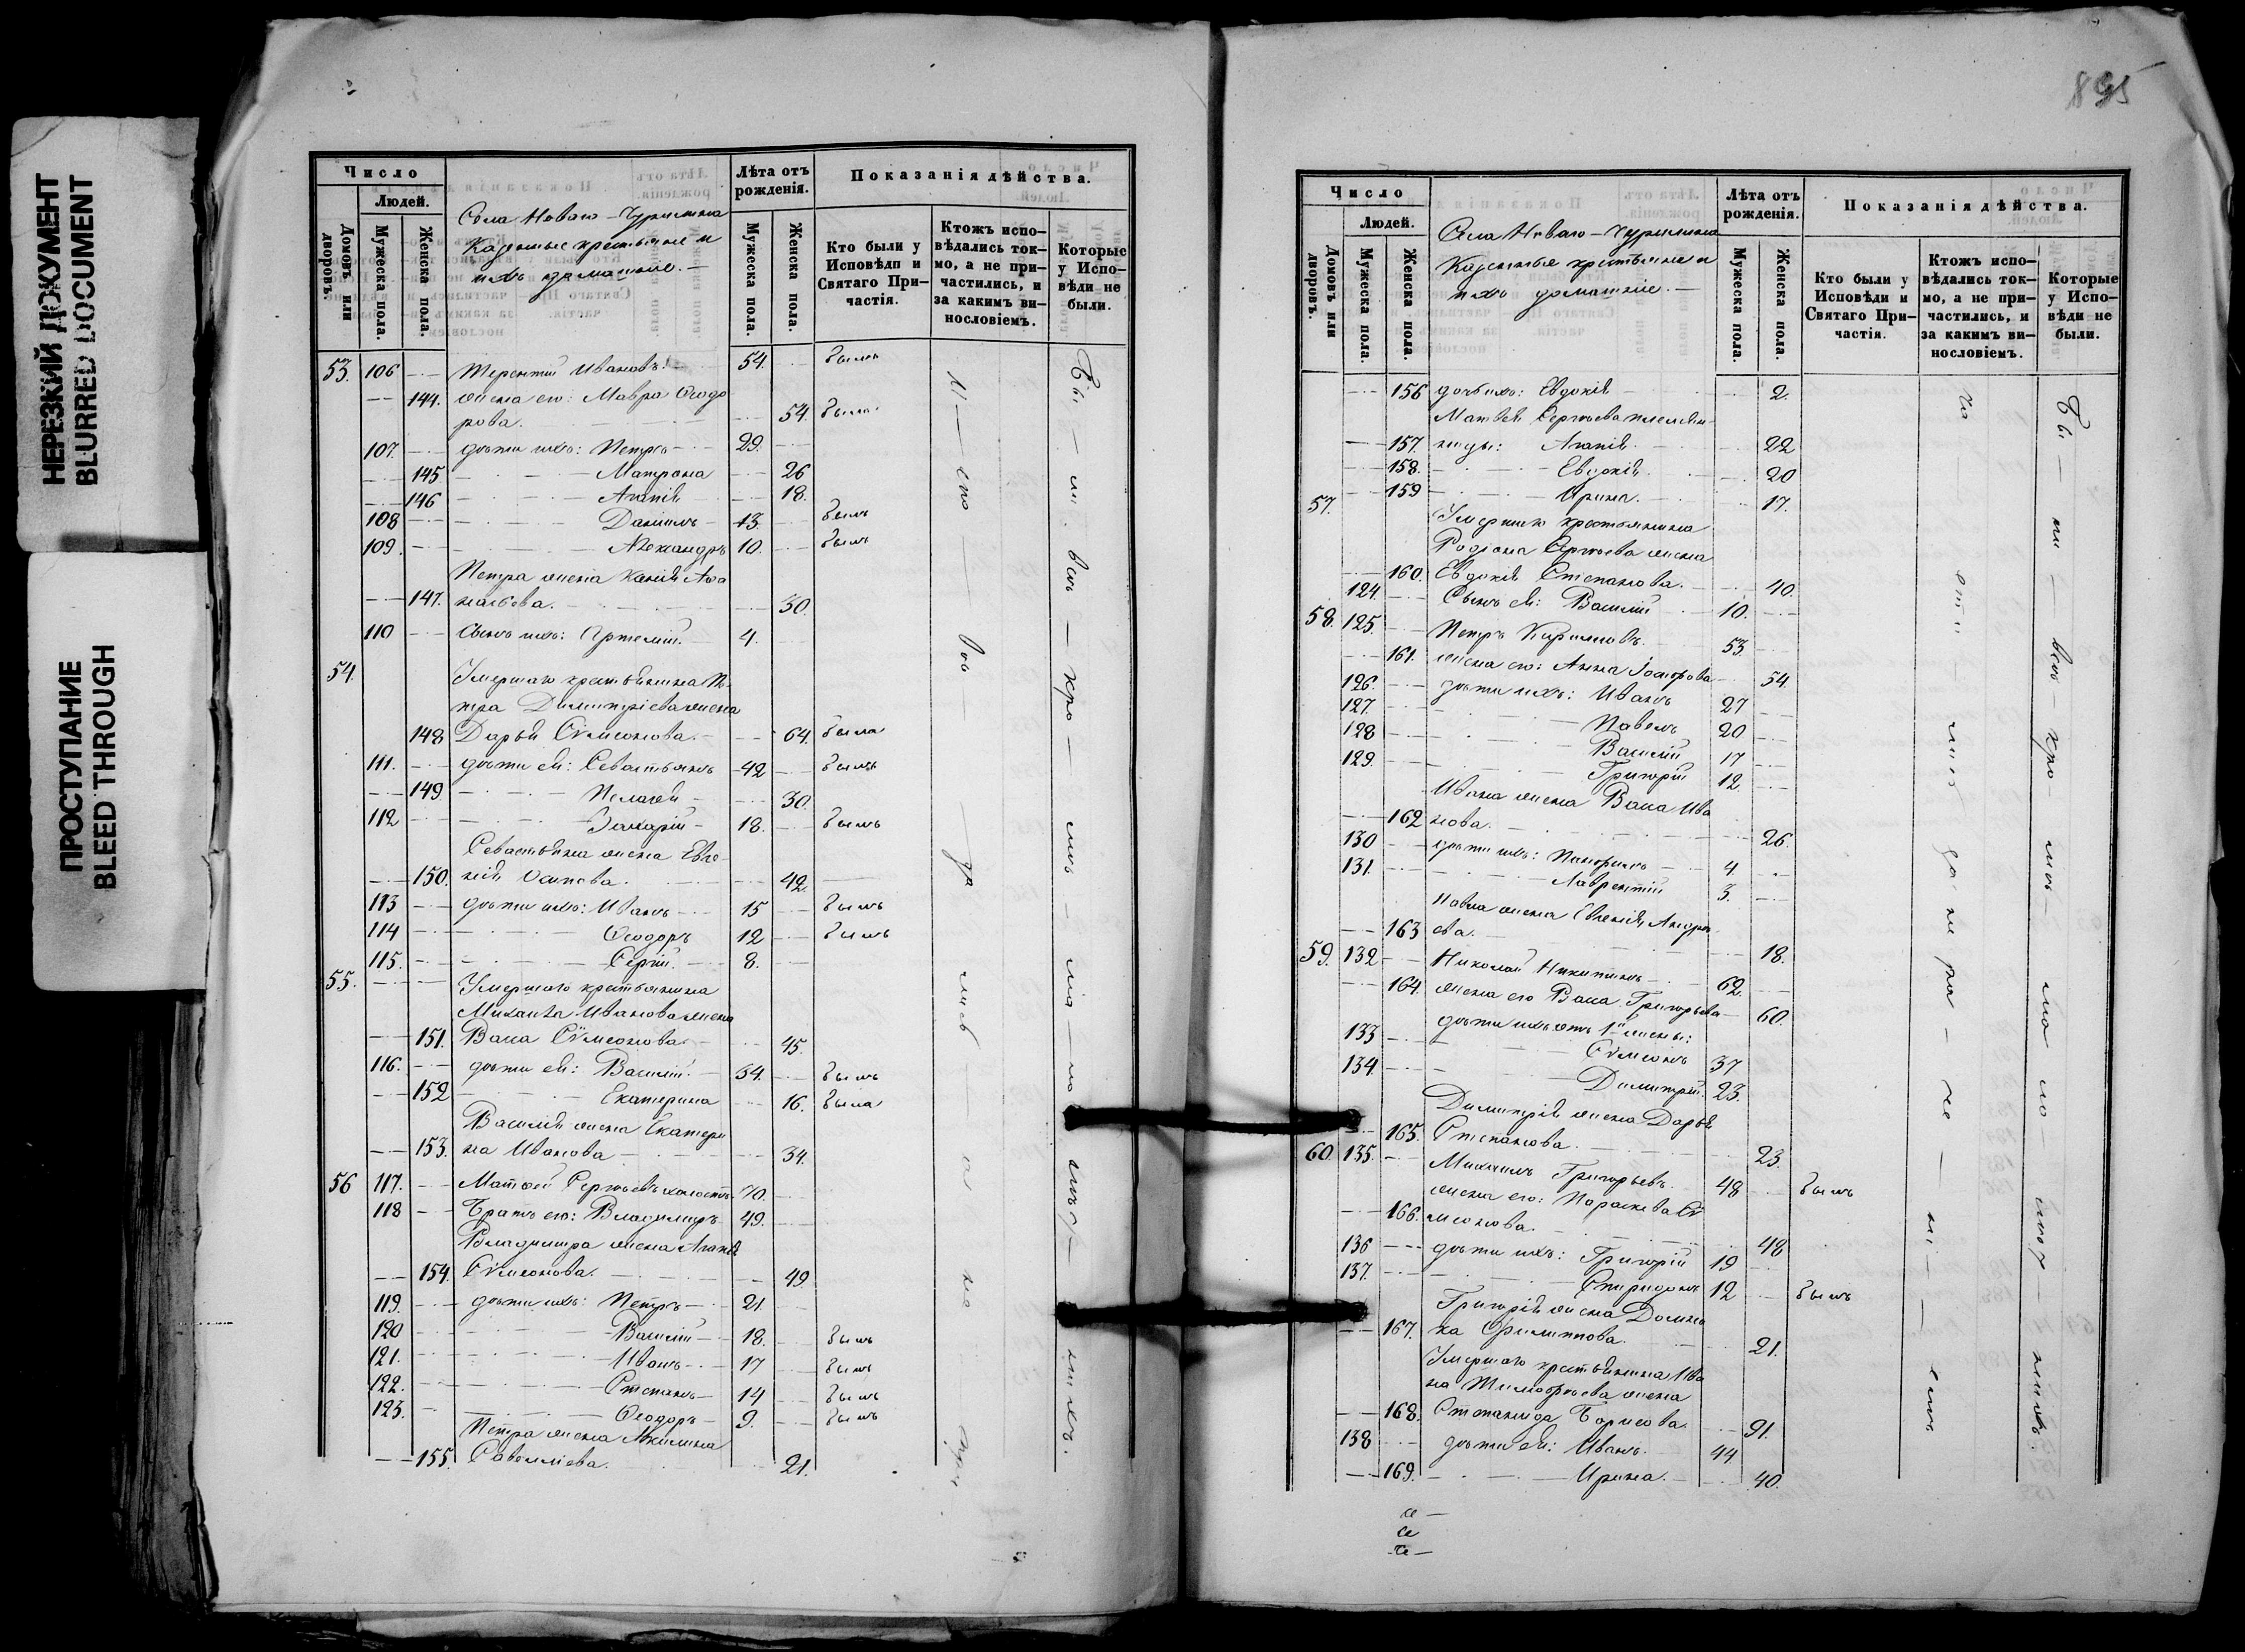 НЕРЕЗКИЙ ДОКУМЕНТ
BLURRED DOCUMENT
ПРОСТУПАНИЕ
BLEED THROUGH
Число
Людей.
Домовъ или дворовъ.
Мужеска пола.
Женска пола.
Села Новаго-
Казенные крестьяне и
ихъ домашніе. —
Лѣта отъ рожденія.
Мужеска пола.
Женска пола.
Показанія дѣйства.
Кто были у Исповѣди и Святаго Причастія.
Ктожъ исповѣдались токмо, а не причастились, и за какимъ винословіемъ.
Которые у Исповѣди не были.
53. 106 Терентій Ивановъ. 54. былъ
144. жена его: Мавра Ѳеодо
рова. 54. была
107. дѣти ихъ: Петръ 29.
145 Матрона 26
146 Агапія 18.
108 Даніилъ 13. былъ
109. Александръ 10. былъ
Петра жена Ксенія Аѳа
147. насьева. 30.
110 Сынъ ихъ: Артемій. 4.
54. Умершаго крестьянина Пе
тра Димитріева жена
148 Дарья Сѷмеонова. 64. была
111. дѣти ея: Севастьянъ 42 былъ
149 Пелагея 30.
112 Захарій 18. былъ
Севастьяна жена Евге
150. нія Осипова. 42.
113 дѣти ихъ: Иванъ 15 былъ
114 Ѳеодоръ 12 былъ
115. Сергій. 8.
55. Умершаго крестьянина
Михаила Иванова жена
151. Васса Сѷмеонова 45.
116. дѣти ея: Василій. 34. былъ
152 Екатерина 16. была
Василія жена Екатери
153. на Иванова 34.
56 117. Матѳей Сергѣевъ холостъ. 70.
118 Братъ его: Владимиръ 49.
Владимира жена Агапія
154. Сѷмеонова. 49
119. дѣти ихъ: Петръ 21.
120 Василій 18. былъ
121. Иванъ 17 былъ
122. Степанъ 14 былъ
123. Ѳеодоръ 9. былъ
Петра жена Акилина
155. Савеліева. 21.
895
Число
Людей.
Домовъ или дворовъ.
Мужеска пола.
Женска пола.
Села Новаго-
Казенные крестьяне и
ихъ домашніе. —
Лѣта отъ рожденія.
Мужеска пола.
Женска пола.
Показанія дѣйства.
Кто были у Исповѣди и Святаго Причастія.
Ктожъ исповѣдались токмо, а не причастились, и за какимъ винословіемъ.
Которые у Исповѣди не были.
156 дочь ихъ: Евдокія 2.
Матвея Сергѣева племян-
157. ницы: Агапія. 22
158. Евдокія. 20
159 Ирина. 17.
57. Умершаго крестьянина
Родіона Сергѣева жена
160. Евдокія Степанова. 40.
124. Сынъ ея: Василій 10.
58. 125. Петръ Кирилловъ. 53
161. жена его: Анна 54.
126. дѣти ихъ: Иванъ 27
127. Павелъ 20
128 Василій 17
129. Григорій 12.
Ивана жена Васса Ива
162 нова. 26.
130 дѣти ихъ: 4.
131. Лаврентій 3.
Павла жена Евгенія Андре
163 ева. 18.
59. 132 Николай Никитинъ 62.
164. жена его Васса Григорьева 60.
дѣти ихъ отъ 1й жены:
133 Сѷмеонъ 37
134. Димитрій. 23.
Димитрія жена Дарья
165. Степанова. 23.
60. 135. Михаилъ Григорьевъ. 48 былъ
жена его: Параскева Сѷ
166. меонова. 48
136 дѣти ихъ: Григорій 19
137. Спиридонъ 12 былъ
Григорія жена Домни
167. ка Филиппова. 21.
Умершаго крестьянина Ива
на Тимоѳеева жена
168. Степанида Борисова. 91.
138 дѣти ея: Иванъ. 44
169. Ирина. 40.